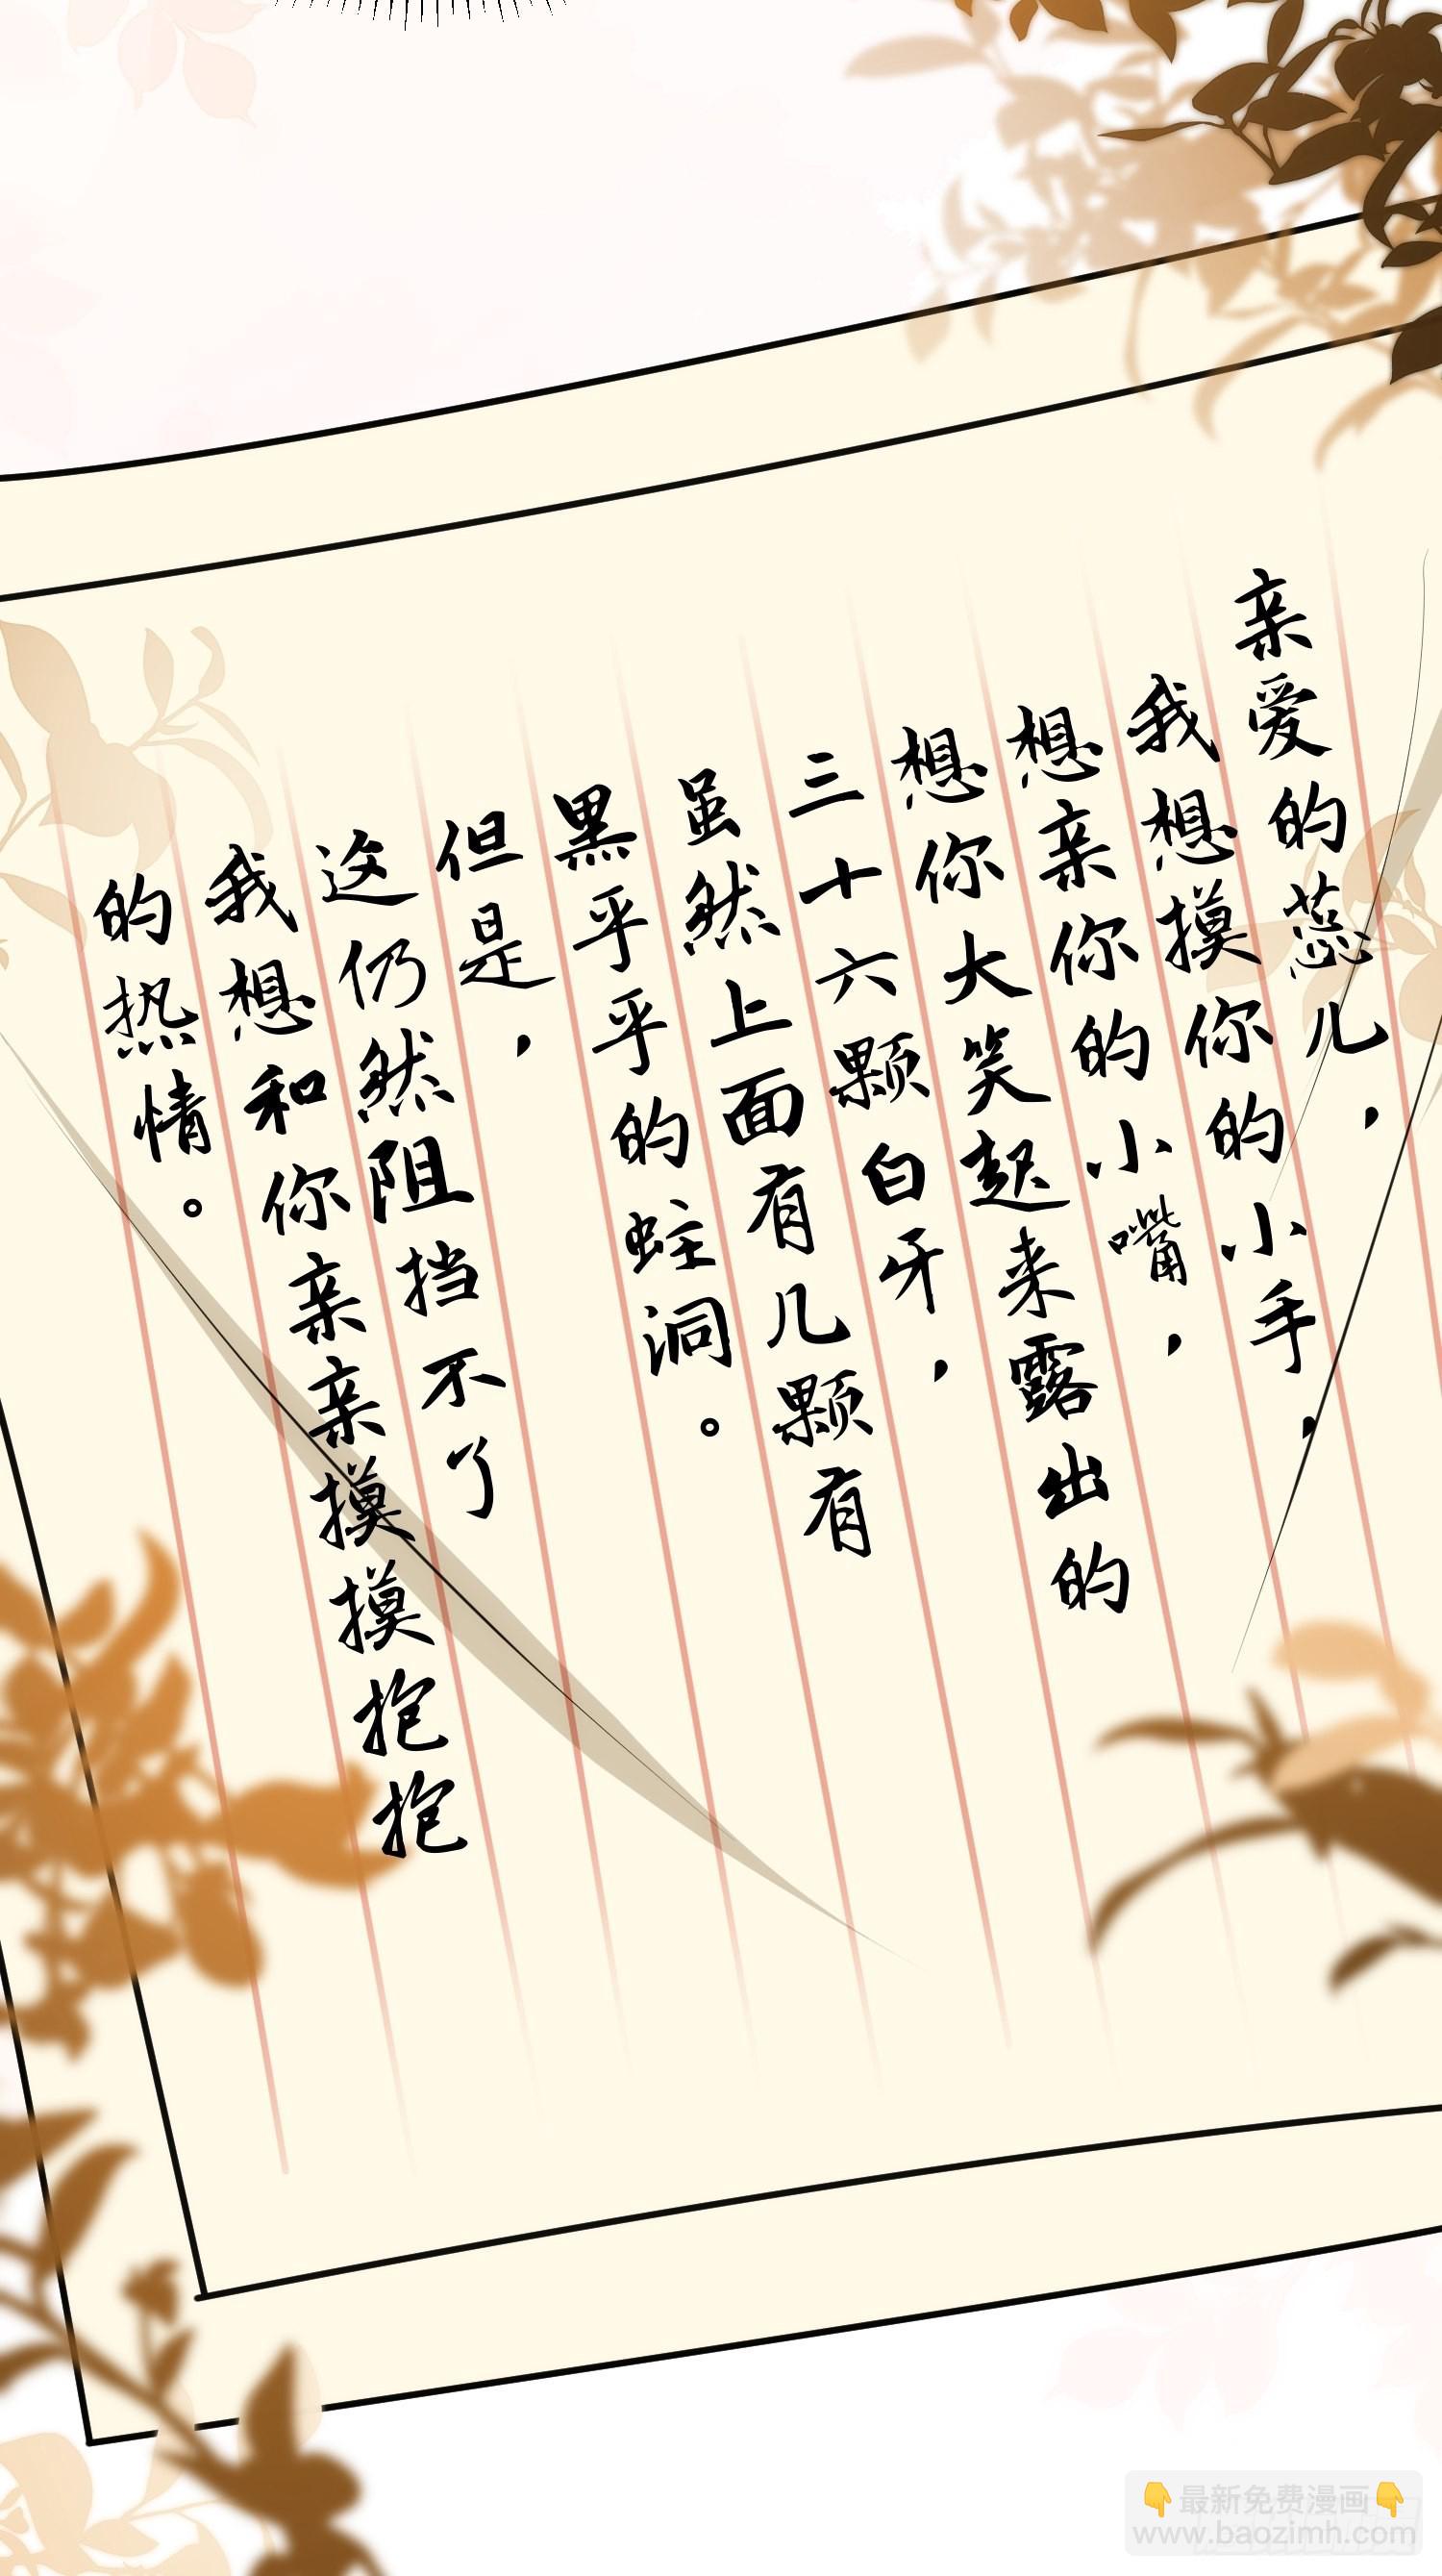 亲爱的蕊儿，
我想摸你的小手，
想亲你的小嘴，
想你大笑起来露出的
三十六颗白牙，
虽然上面有几颗有
黑乎乎的蛀洞。
但是，
这仍然阻挡不了
我想和你亲亲摸摸抱抱
的热情。
👇最新免费漫画👇
www.baozimh.com